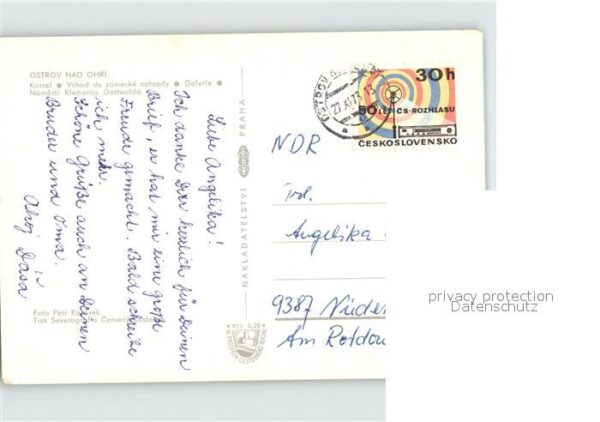 OSTROV NAD OHŘÍ
Kostel • Vchod do zámecké zahrady • Galerie •
Náměstí Klementa Gottwalda
Liebe Angelika!
Ich danke Dir herzlich für Deinen
Brief, er hat mir eine große
Freude gemacht. Bald schreibe
ich mehr.
Schöne Grüße auch an Deinen
Bruder und Oma.
Ahoj Dáša
Foto Petr
Tisk Severo
NAKLADATELSTVÍ
PRAHA
Kčs 0,20
27.XI.73-13
30h
50 LET ČS. ROZHLASU
ČESKOSLOVENSKO
NDR
Angelika
9387
Am
privacy protection
Datenschutz